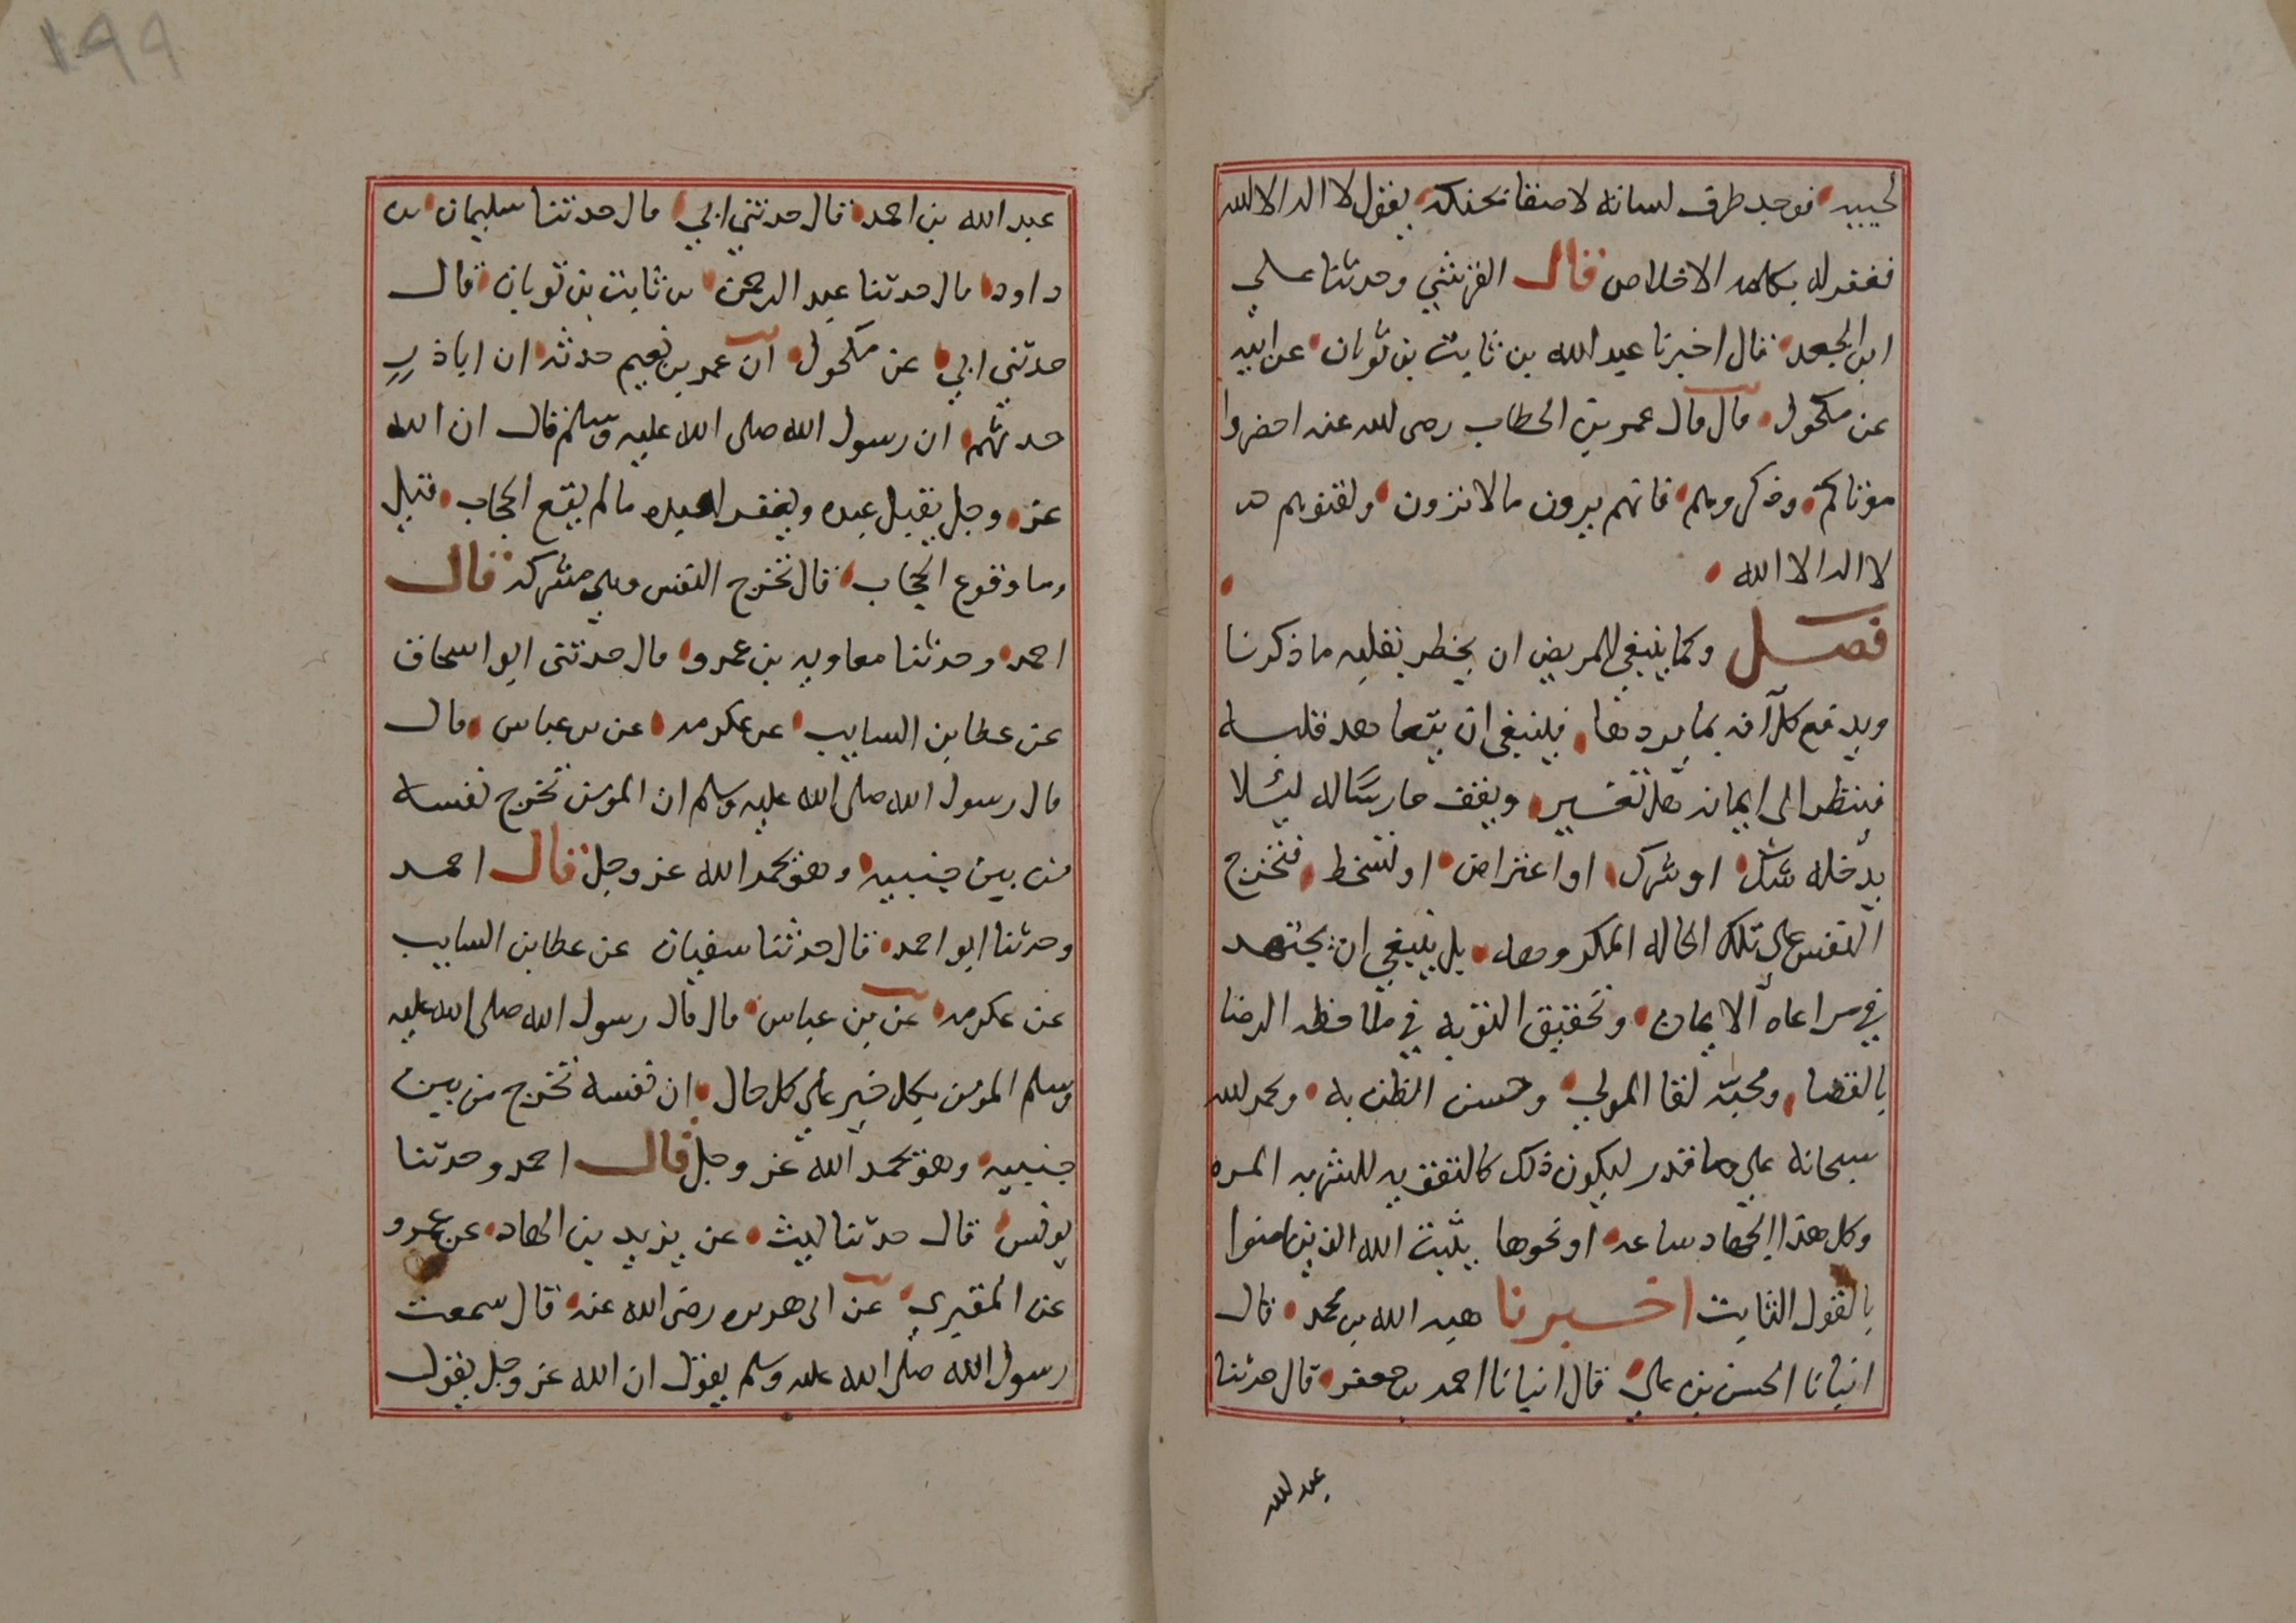 لحييه فوجد طرف لسانه لاصقا بحنكه يقول لا اله الا الله
فغفر له بكلمه الاخلاص قال القرشي وحدثنا علي
ابن الجعد قال اخبرنا عبد الله بن ثابت بن ثوبان عن ابيه
عن مكحول قال قال عمر بن الخطاب رضى الله عنه احضروا
موتاكم وذكروهم فانهم يرون مالا ترون ولقنوهم
لا اله الا الله
فصل وكما ينبغي للمريض ان يخطر بقلبه ما ذكرنا
ويدفع كل آفه بما يردها فينبغي ان يتعاهد قلبه
فينظر الى ايمانه هل تغير ويقف حارسًا له ليلا
يدخله شك او شرك او اعتراض او تسخط فتخرج
النفس على تلك الحاله المكروهه بل ينبغي ان يجتهد
في مراعاه الايمان وتحقيق التوبه في ملاحظه الرضا
بالقضا ومحبة لقا المولى وحسن الظن به وحمد الله
سبحانه على ما قدر ليكون ذلك كالتقويه للشربه المره
وكل هذا الجهاد ساعه او نحوها يثبت الله الذين امنوا
بالقول الثابت اخبرنا هبه الله بن محمد قال
انبانا الحسن بن علي قال انبانا احمد بن جعفر قال حدثنا
عبد الله
١٩٩
عبد الله بن احمد قال حدثني ابي قال حدثنا سليمان بن
داود قال حدثنا عبد الرحمن بن ثابت بن ثوبان قال
حدثني ابي عن مكحول ان عمر بن نعيم حدثه ان اباذر
حدثهم ان رسول الله صلى الله عليه وسلم قال ان الله
عز وجل يقبل عبده ويغفر لعبده ما لم يقع الحجاب قيل
وما وقوع الحجاب قال تخرج النفس وهي مشركه قال
احمد وحدثنا معاويه بن عمرو قال حدثنى ابو اسحاق
عن عطا بن السايب عن عكرمه عن بن عباس قال
قال رسول الله صلى الله عليه وسلم ان المومن تخرج نفسه
من بين جنبيه وهو يحمد الله عز وجل قال احمد
وحدثنا ابو احمد قال حدثنا سفيان عن عطا بن السايب
عن عكرمه عن بن عباس قال قال رسول الله صلى الله عليه
وسلم المومن بكل خير على كل حال ان نفسه تخرج من بين
جنبيه وهو يحمد الله عز وجل قال احمد وحدثنا
يونس قال حدثنا ليث عن يزيد بن الهاد عن عمرو
عن المقبري عن ابى هريره رضى الله عنه قال سمعت
رسول الله صلى الله عليه وسلم يقول ان الله عز وجل يقول